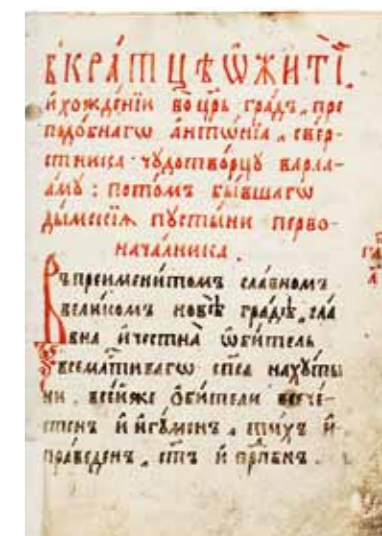 вкра́тцѣ ѡ житїѝ
и҆ хожде́нїи во цр҃ь гра́дъ, пре
подо́бнагѡ а҆нтѡ́нїа, свер-
стника чꙋдотво́рцꙋ варла-
а́мꙋ : пото́мъ бы́вшагѡ
ды́мскїѧ пꙋсты́ни перво-
нача́лника.
Въ преимени́томъ сла́вномъ
вели́комъ но́вѣ гра́дѣ, сла
вна и҆ честна̀ ѡ҆би́тель
всемⷭ҇тиваго сп҃са на хꙋ́ты
ни. все́йже ѻ҆би́тели
стенъ и҆ и҆гꙋ́менъ, ти́хъ и҆
пра́веденъ, ст҃ъ и҆